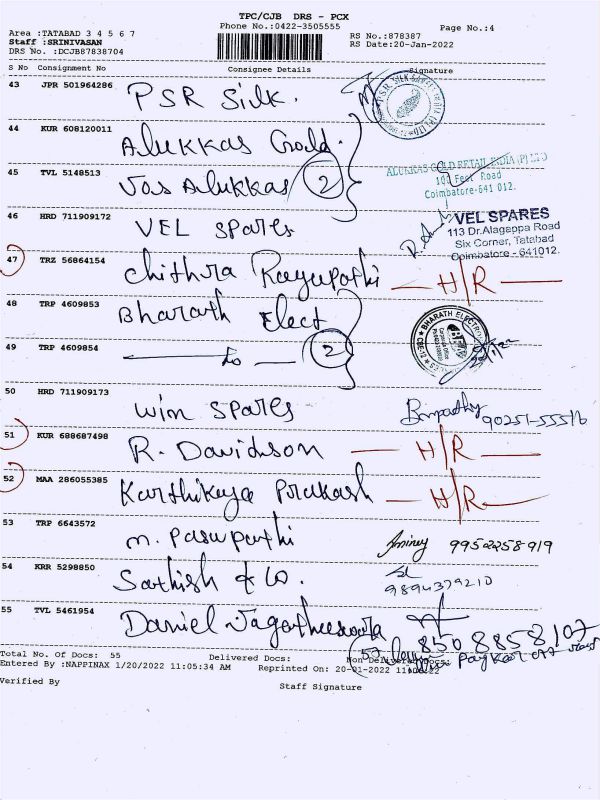 TPC/CJB DRS - PCX
Area :TATABAD 3 4 5 6 7
Phone No.:0422-3505555
Page No.:4
Staff :SRINIVASAN
RS No.:878387
DRS No. :DCJB87838704
RS Date:20-Jan-2022
S No Consignment No Consignee Details Signature
43 JPR 501964286 PSR Silk.
44 KUR 608120011 Alukkas Gold.
ALUKKAS GOLD RETAIL INDIA (P) LTD
45 TVL 5148513 Jos Alukkas 2
100 Feet Road
Coimbatore-641 012.
46 HRD 711909172 VEL Spares
VEL SPARES
113 Dr.Alagappa Road
Six Corner, Tatabad
Coimbatore - 641012.
47 TRZ 56864154 Chithra Ragupathi H/R
48 TRP 4609853 Bharath Elect
BHARATH ELECTRO
49 TRP 4609854 do 2
50 HRD 711909173 Win Spares 90251-55516
51 KUR 688687498 R. Davidson H/R
52 MAA 286055385 Karthikeya Prakash H/R
53 TRP 6643572 M. Pasupathi 9952258919
54 KRR 5298850 Sathish & Co. 9894379210
55 TVL 5461954 Daniel 8508858107
Total No. Of Docs: 55 Delivered Docs: Non Delivered Docs:
Entered By :NAPPINAX 1/20/2022 11:05:34 AM Reprinted On: 20-01-2022
Verified By Staff Signature